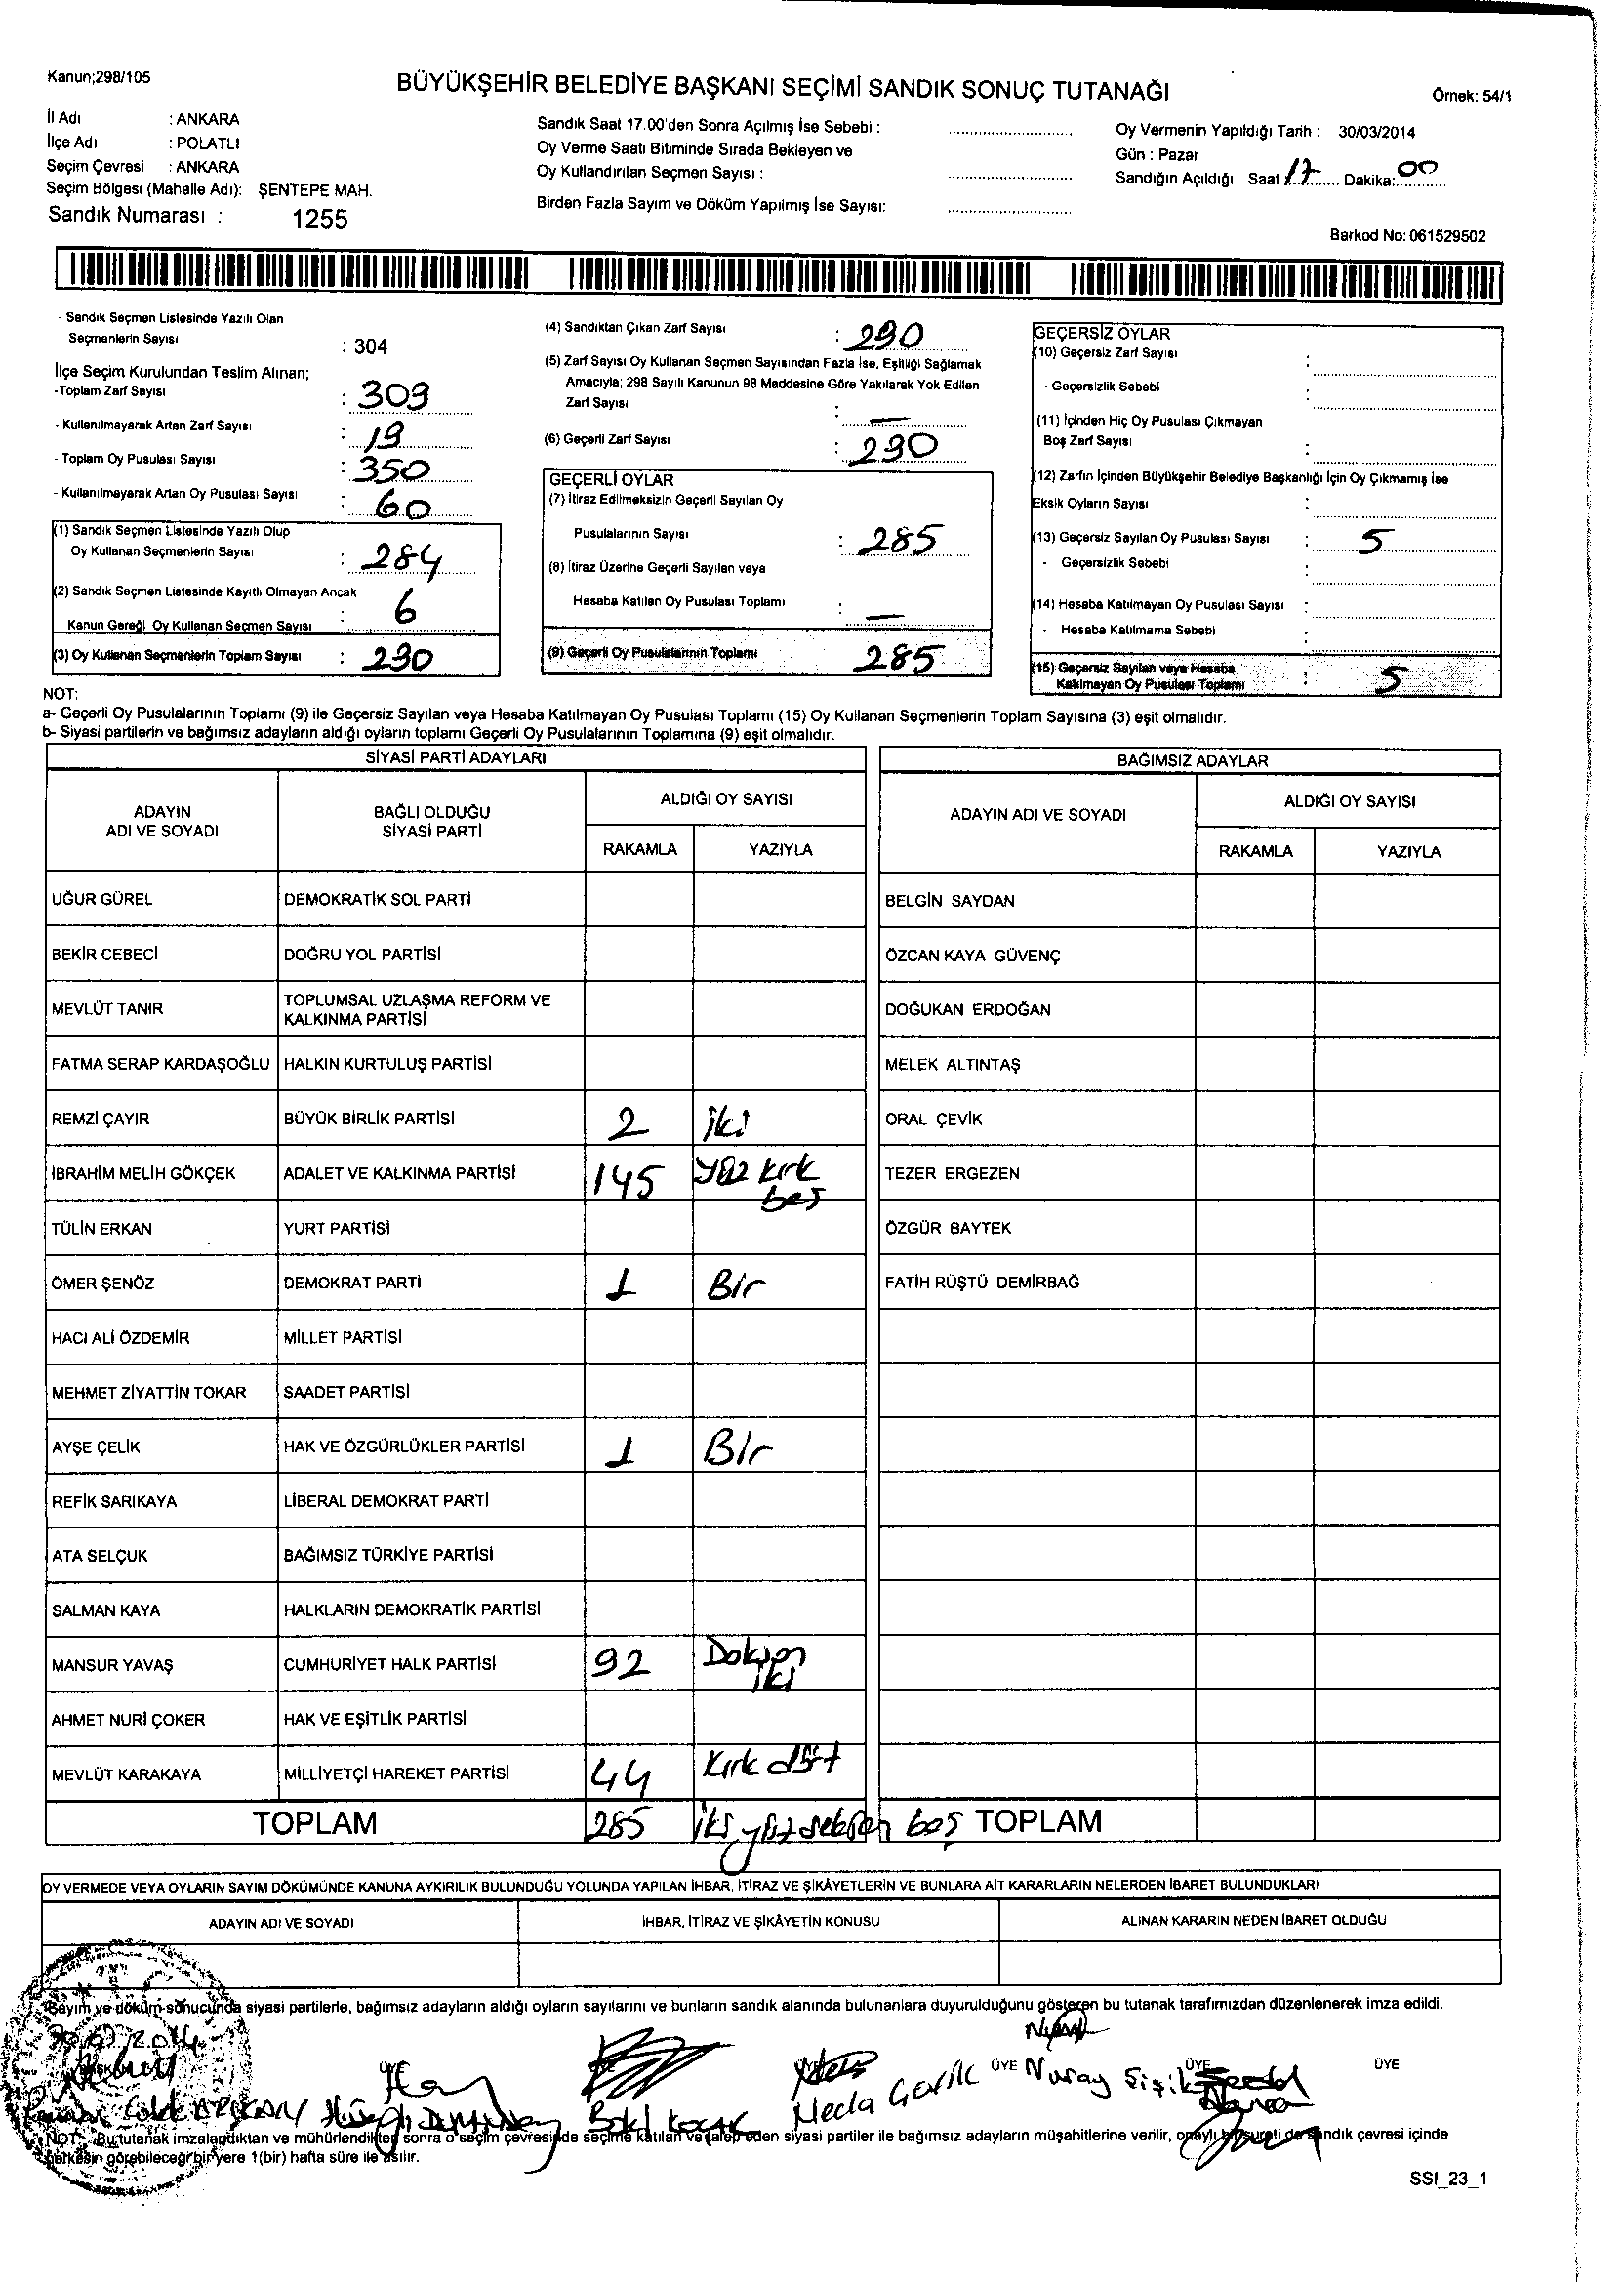 Kanun;298/105
BÜYÜKŞEHİR BELEDİYE BAŞKANI SEÇİMİ SANDIK SONUÇ TUTANAĞI
Örnek: 54/1
İl Adı : ANKARA
İlçe Adı : POLATLI
Seçim Çevresi : ANKARA
Seçim Bölgesi (Mahalle Adı): ŞENTEPE MAH.
Sandık Numarası : 1255
Sandık Saat 17.00'den Sonra Açılmış İse Sebebi :
Oy Verme Saati Bitiminde Sırada Bekleyen ve
Oy Kullandırılan Seçmen Sayısı :
Birden Fazla Sayım ve Döküm Yapılmış İse Sayısı:
Oy Vermenin Yapıldığı Tarih : 30/03/2014
Gün : Pazar
Sandığın Açıldığı Saat 17 Dakika: 00
Barkod No: 061529502
- Sandık Seçmen Listesinde Yazılı Olan
Seçmenlerin Sayısı : 304
İlçe Seçim Kurulundan Teslim Alınan;
-Toplam Zarf Sayısı : 309
- Kullanılmayarak Artan Zarf Sayısı : 19
- Toplam Oy Pusulası Sayısı : 350
- Kullanılmayarak Artan Oy Pusulası Sayısı : 60
(1) Sandık Seçmen Listesinde Yazılı Olup
Oy Kullanan Seçmenlerin Sayısı : 284
(2) Sandık Seçmen Listesinde Kayıtlı Olmayan Ancak
Kanun Gereği Oy Kullanan Seçmen Sayısı : 6
(3) Oy Kullanan Seçmenlerin Toplam Sayısı : 290
(4) Sandıktan Çıkan Zarf Sayısı : 290
(5) Zarf Sayısı Oy Kullanan Seçmen Sayısından Fazla İse, Eşitliği Sağlamak
Amacıyla; 298 Sayılı Kanunun 98.Maddesine Göre Yakılarak Yok Edilen
Zarf Sayısı : —
(6) Geçerli Zarf Sayısı : 290
GEÇERLİ OYLAR
(7) İtiraz Edilmeksizin Geçerli Sayılan Oy
Pusulalarının Sayısı : 285
(8) İtiraz Üzerine Geçerli Sayılan veya
Hesaba Katılan Oy Pusulası Toplamı : —
(9) Geçerli Oy Pusulalarının Toplamı 285
GEÇERSİZ OYLAR
(10) Geçersiz Zarf Sayısı :
- Geçersizlik Sebebi :
(11) İçinden Hiç Oy Pusulası Çıkmayan
Boş Zarf Sayısı :
(12) Zarfın İçinden Büyükşehir Belediye Başkanlığı İçin Oy Çıkmamış İse
Eksik Oyların Sayısı :
(13) Geçersiz Sayılan Oy Pusulası Sayısı : 5
- Geçersizlik Sebebi :
(14) Hesaba Katılmayan Oy Pusulası Sayısı :
- Hesaba Katılmama Sebebi :
(15) Geçersiz Sayılan veya Hesaba
Katılmayan Oy Pusulası Toplamı : 5
NOT:
a- Geçerli Oy Pusulalarının Toplamı (9) ile Geçersiz Sayılan veya Hesaba Katılmayan Oy Pusulası Toplamı (15) Oy Kullanan Seçmenlerin Toplam Sayısına (3) eşit olmalıdır.
b- Siyasi partilerin ve bağımsız adayların aldığı oyların toplamı Geçerli Oy Pusulalarının Toplamına (9) eşit olmalıdır.
SİYASİ PARTİ ADAYLARI
ADAYIN ADI VE SOYADI
BAĞLI OLDUĞU SİYASİ PARTİ
ALDIĞI OY SAYISI
RAKAMLA YAZIYLA
UĞUR GÜREL DEMOKRATİK SOL PARTİ
BEKİR CEBECİ DOĞRU YOL PARTİSİ
MEVLÜT TANIR TOPLUMSAL UZLAŞMA REFORM VE
KALKINMA PARTİSİ
FATMA SERAP KARDAŞOĞLU HALKIN KURTULUŞ PARTİSİ
REMZİ ÇAYIR BÜYÜK BİRLİK PARTİSİ 2 iki
İBRAHİM MELİH GÖKÇEK ADALET VE KALKINMA PARTİSİ 145 yüz kırk
beş
TÜLİN ERKAN YURT PARTİSİ
ÖMER ŞENÖZ DEMOKRAT PARTİ 1 Bir
HACI ALİ ÖZDEMİR MİLLET PARTİSİ
MEHMET ZİYATTİN TOKAR SAADET PARTİSİ
AYŞE ÇELİK HAK VE ÖZGÜRLÜKLER PARTİSİ 1 Bir
REFİK SARIKAYA LİBERAL DEMOKRAT PARTİ
ATA SELÇUK BAĞIMSIZ TÜRKİYE PARTİSİ
SALMAN KAYA HALKLARIN DEMOKRATİK PARTİSİ
MANSUR YAVAŞ CUMHURİYET HALK PARTİSİ 92 Doksan
iki
AHMET NURİ ÇOKER HAK VE EŞİTLİK PARTİSİ
MEVLÜT KARAKAYA MİLLİYETÇİ HAREKET PARTİSİ 44 Kırk dört
TOPLAM 285 İki yüz seksen beş
BAĞIMSIZ ADAYLAR
ADAYIN ADI VE SOYADI
ALDIĞI OY SAYISI
RAKAMLA YAZIYLA
BELGİN SAYDAN
ÖZCAN KAYA GÜVENÇ
DOĞUKAN ERDOĞAN
MELEK ALTINTAŞ
ORAL ÇEVİK
TEZER ERGEZEN
ÖZGÜR BAYTEK
FATİH RÜŞTÜ DEMİRBAĞ
TOPLAM
OY VERMEDE VEYA OYLARIN SAYIM DÖKÜMÜNDE KANUNA AYKIRILIK BULUNDUĞU YOLUNDA YAPILAN İHBAR, İTİRAZ VE ŞİKÂYETLERİN VE BUNLARA AİT KARARLARIN NELERDEN İBARET BULUNDUKLARI
ADAYIN ADI VE SOYADI İHBAR, İTİRAZ VE ŞİKÂYETİN KONUSU ALINAN KARARIN NEDEN İBARET OLDUĞU
Sayım ve döküm sonucunda siyasi partilerle, bağımsız adayların aldığı oyların sayılarını ve bunların sandık alanında bulunanlara duyurulduğunu gösteren bu tutanak tarafımızdan düzenlenerek imza edildi.
ÜYE ÜYE ÜYE
Nuray Şişik
NOT: Bu tutanak imzalandıktan ve mühürlendikten sonra o seçim çevresinde seçime katılan ve talep eden siyasi partiler ile bağımsız adayların müşahitlerine verilir, onaylı bir sureti de sandık çevresi içinde
herkesin görebileceği bir yere 1(bir) hafta süre ile asılır.
SSI_23_1